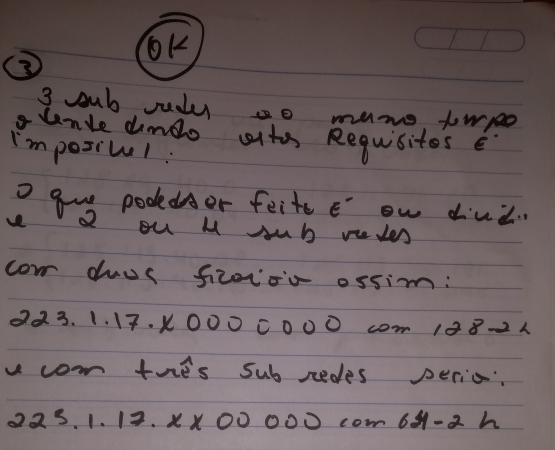 OK
3
3 sub redes ao mesmo tempo
atendendo estes Requisitos é
impossivel.
O que pode ser feito É ou dividir
e 2 ou 4 sub redes
com duas ficaria assim:
223.1.17.X000 0000 com 128-2 h
e com três sub redes seria:
223.1.17.XX00 000 com 64-2 h